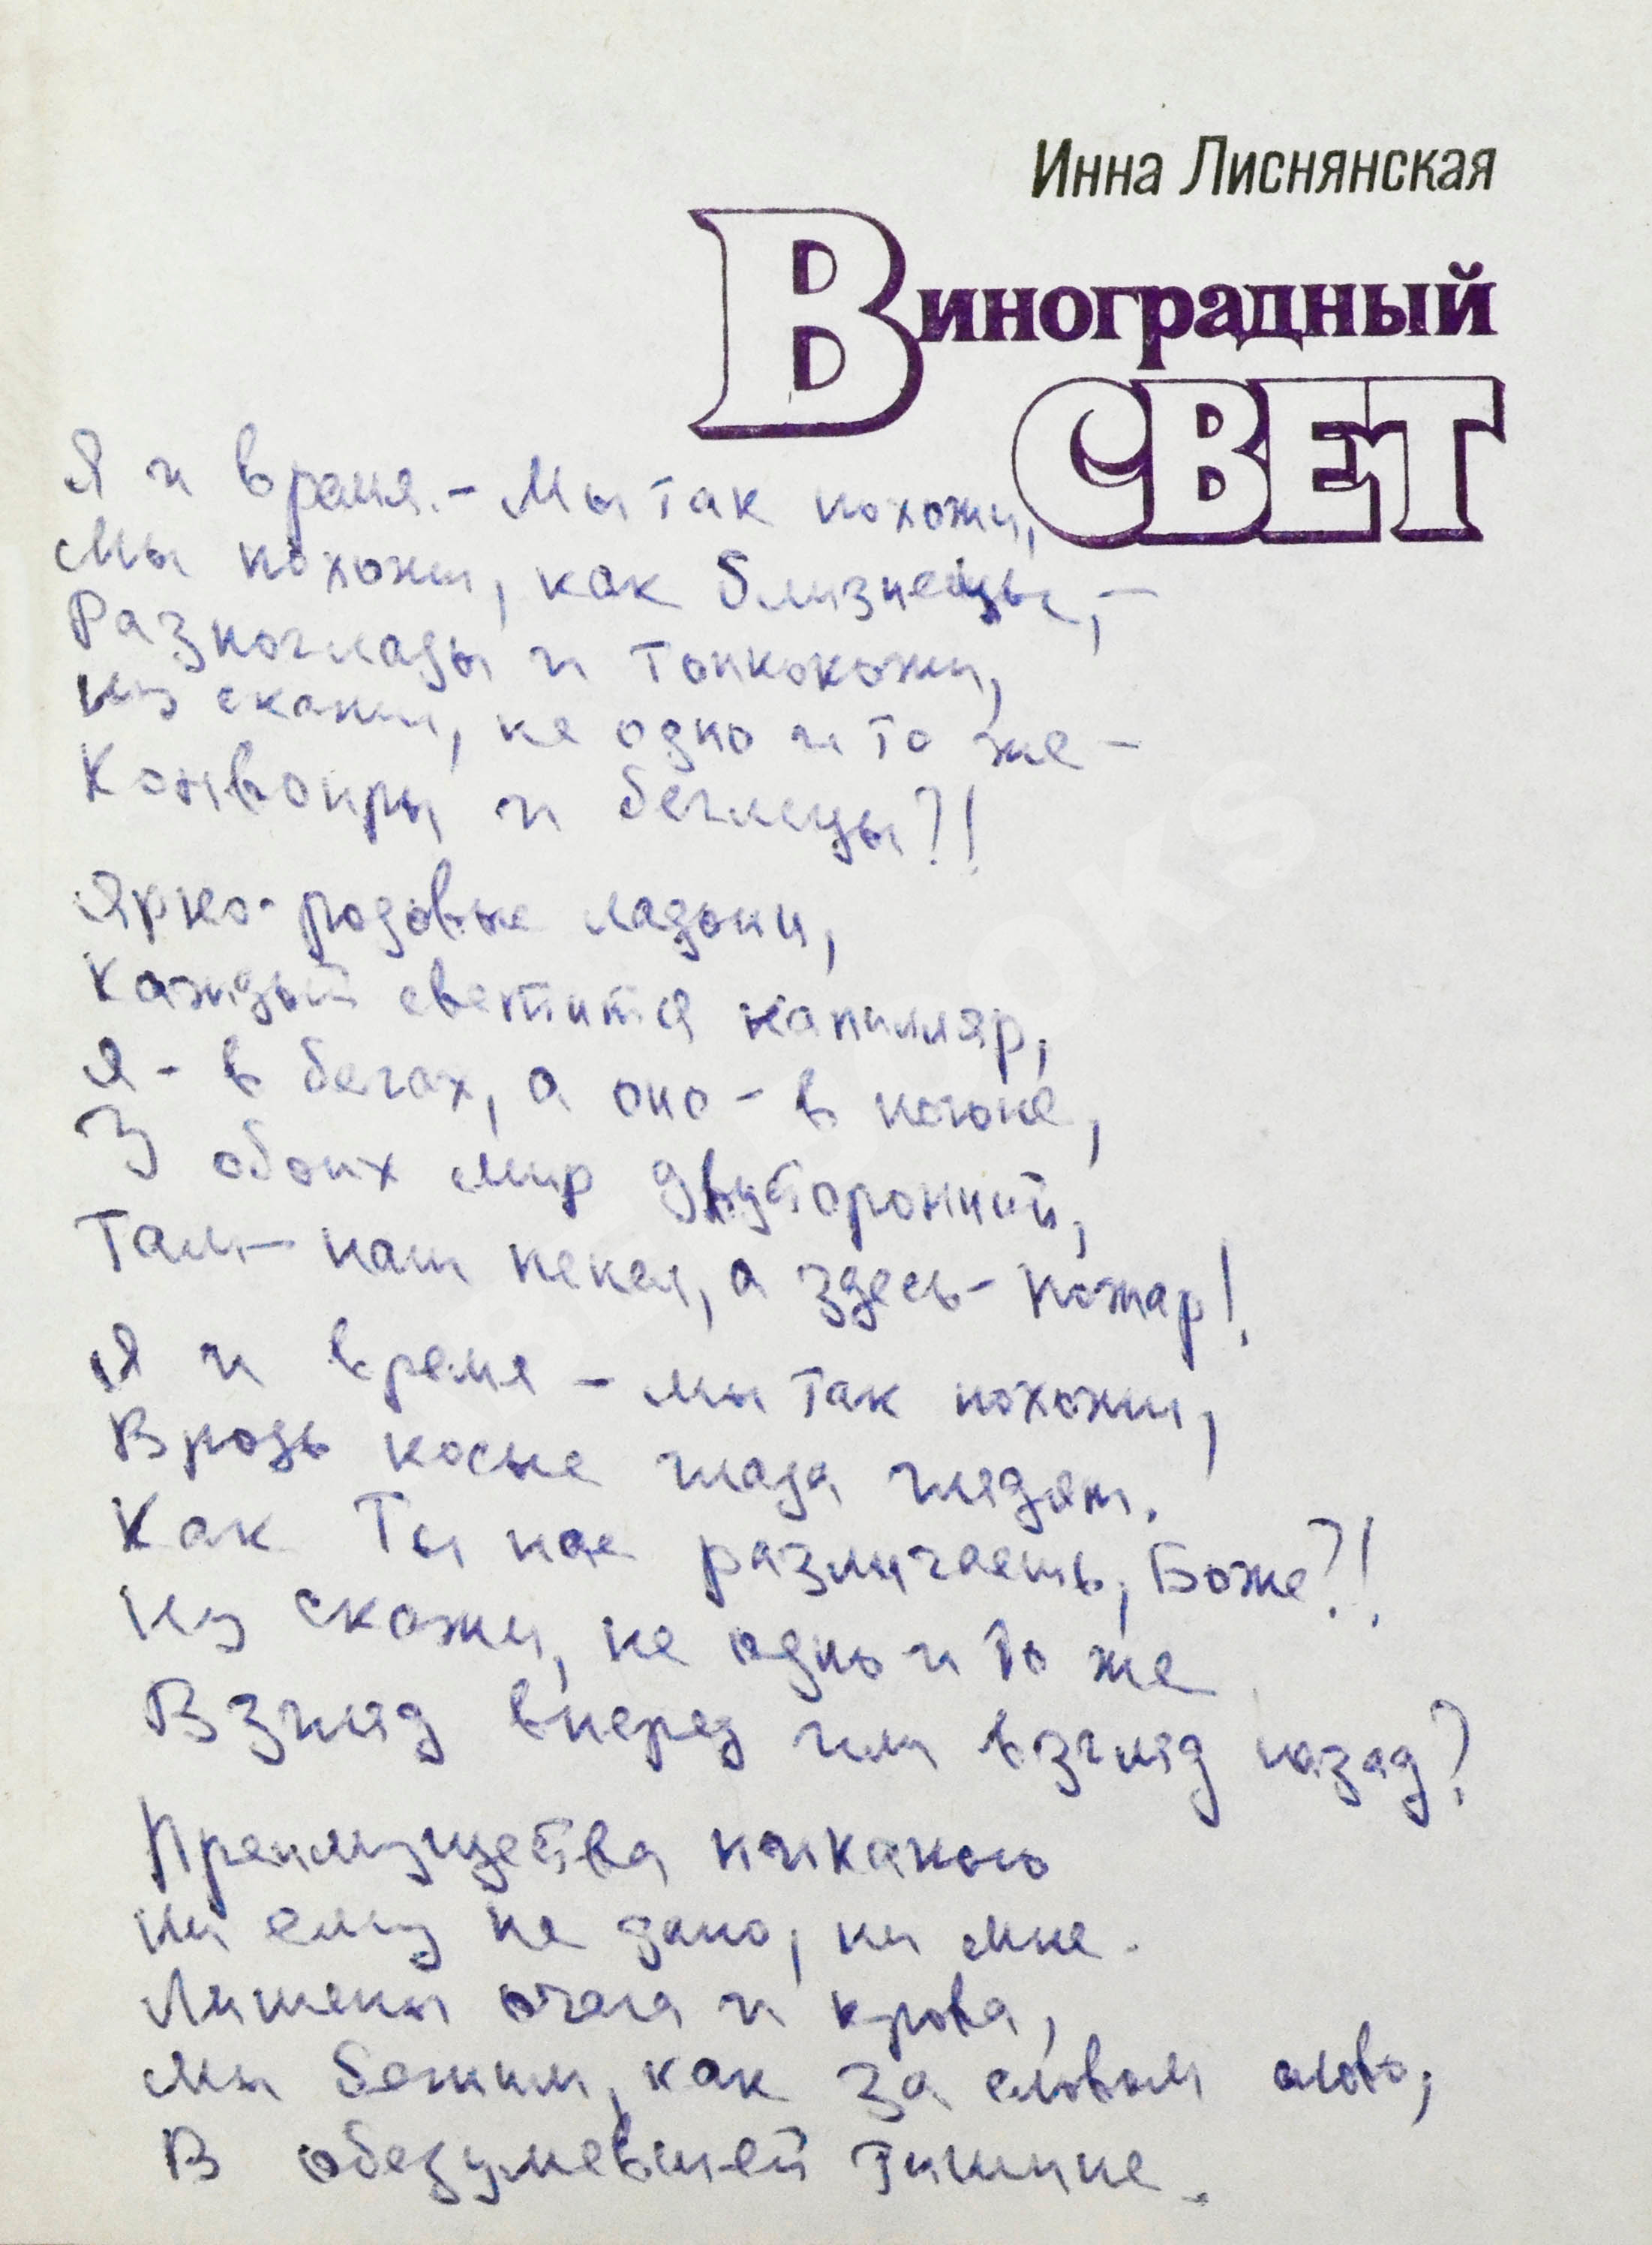 Инна Лиснянская
Виноградный
СВЕТ
Я и время. – Мы так похожи,
Мы похожи, как близнецы, –
Разноглазы и тонкокожи,
Ну скажи, не одно и то же –
Конвоиры и беглецы?!
Ярко-розовые ладони,
Каждый светится капилляр,
Я – в бегах, а оно – в погоне,
У обоих мир двусторонний,
Там – наш пепел, а здесь – пожар!
Я и время – мы так похожи,
Врозь косые глаза глядят.
Как Ты нас различаешь, Боже?!
Ну скажи, не одно и то же
Взгляд вперед или взгляд назад?
Преимущества никакого
Ни ему не дано, ни мне.
Лишены очага и крова,
Мы бежим, как за словом слово,
В обезумевшей тишине.